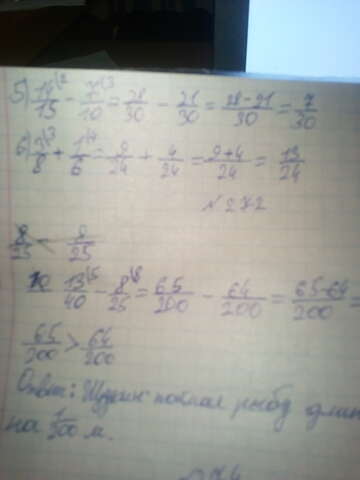 5) 14/15 \2 - 7/10 \3 = 28/30 - 21/30 = 28-21/30 = 7/30
6) 3/8 \3 + 1/6 \4 = 9/24 + 4/24 = 9+4/24 = 13/24
№ 272
8/25 < 8/25
13/40 \5 - 8/25 \8 = 65/200 - 64/200 = 65-64/200 =
65/200 > 64/200
Ответ: поймал рыбу
на 1/200 м.